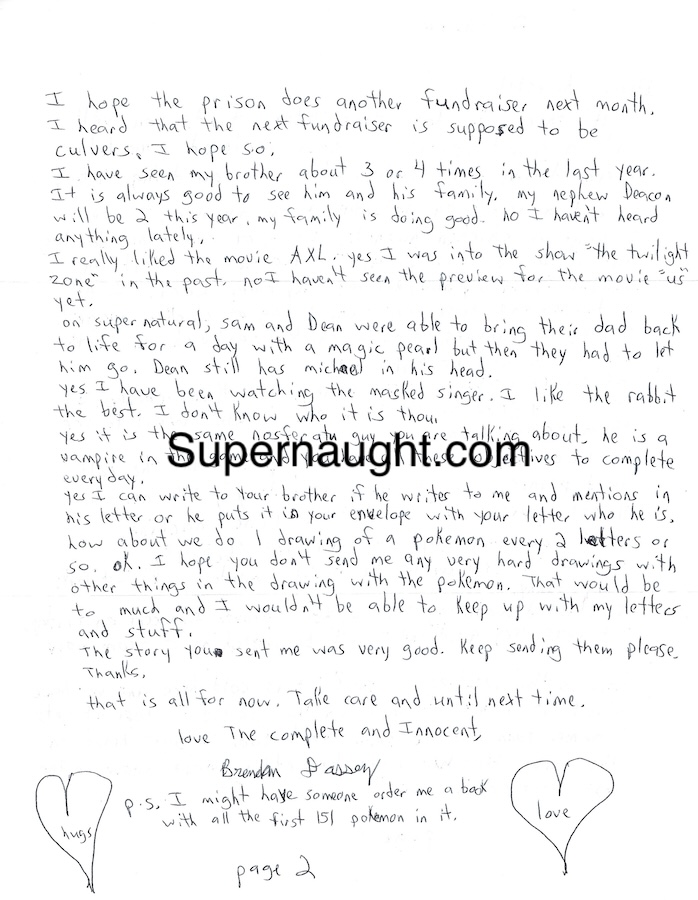 I hope the prison does another fundraiser next month.
I heard that the next fundraiser is supposed to be
culvers. I hope so.
I have seen my brother about 3 or 4 times in the last year.
It is always good to see him and his family. my nephew Deacon
will be 2 this year. my family is doing good. no I haven't heard
anything lately.
I really liked the movie AXL. yes I was into the show "the twilight
zone" in the past. no I haven't seen the preview for the movie "us"
yet.
on supernatural, sam and Dean were able to bring their dad back
to life for a day with a magic pearl but then they had to let
him go. Dean still has michael in his head.
yes I have been watching the masked singer. I like the rabbit
the best. I don't know who it is thou.
yes it is the same nosferatu guy you are talking about. he is a
Supernaught.com
vampire in the game and you have these objectives to complete
everyday.
yes I can write to your brother if he writes to me and mentions in
his letter or he puts it in your envelope with your letter who he is.
how about we do 1 drawing of a pokemon every 2 letters or
so. ok. I hope you don't send me any very hard drawings with
other things in the drawing with the pokemon. That would be
to much and I wouldn't be able to keep up with my letters
and stuff.
The story you sent me was very good. Keep sending them please.
Thanks.
that is all for now. Take care and until next time.
love The complete and Innocent,
Brendan Dassey
p.s. I might have someone order me a book
with all the first 151 pokemon in it.
hugs
love
page 2